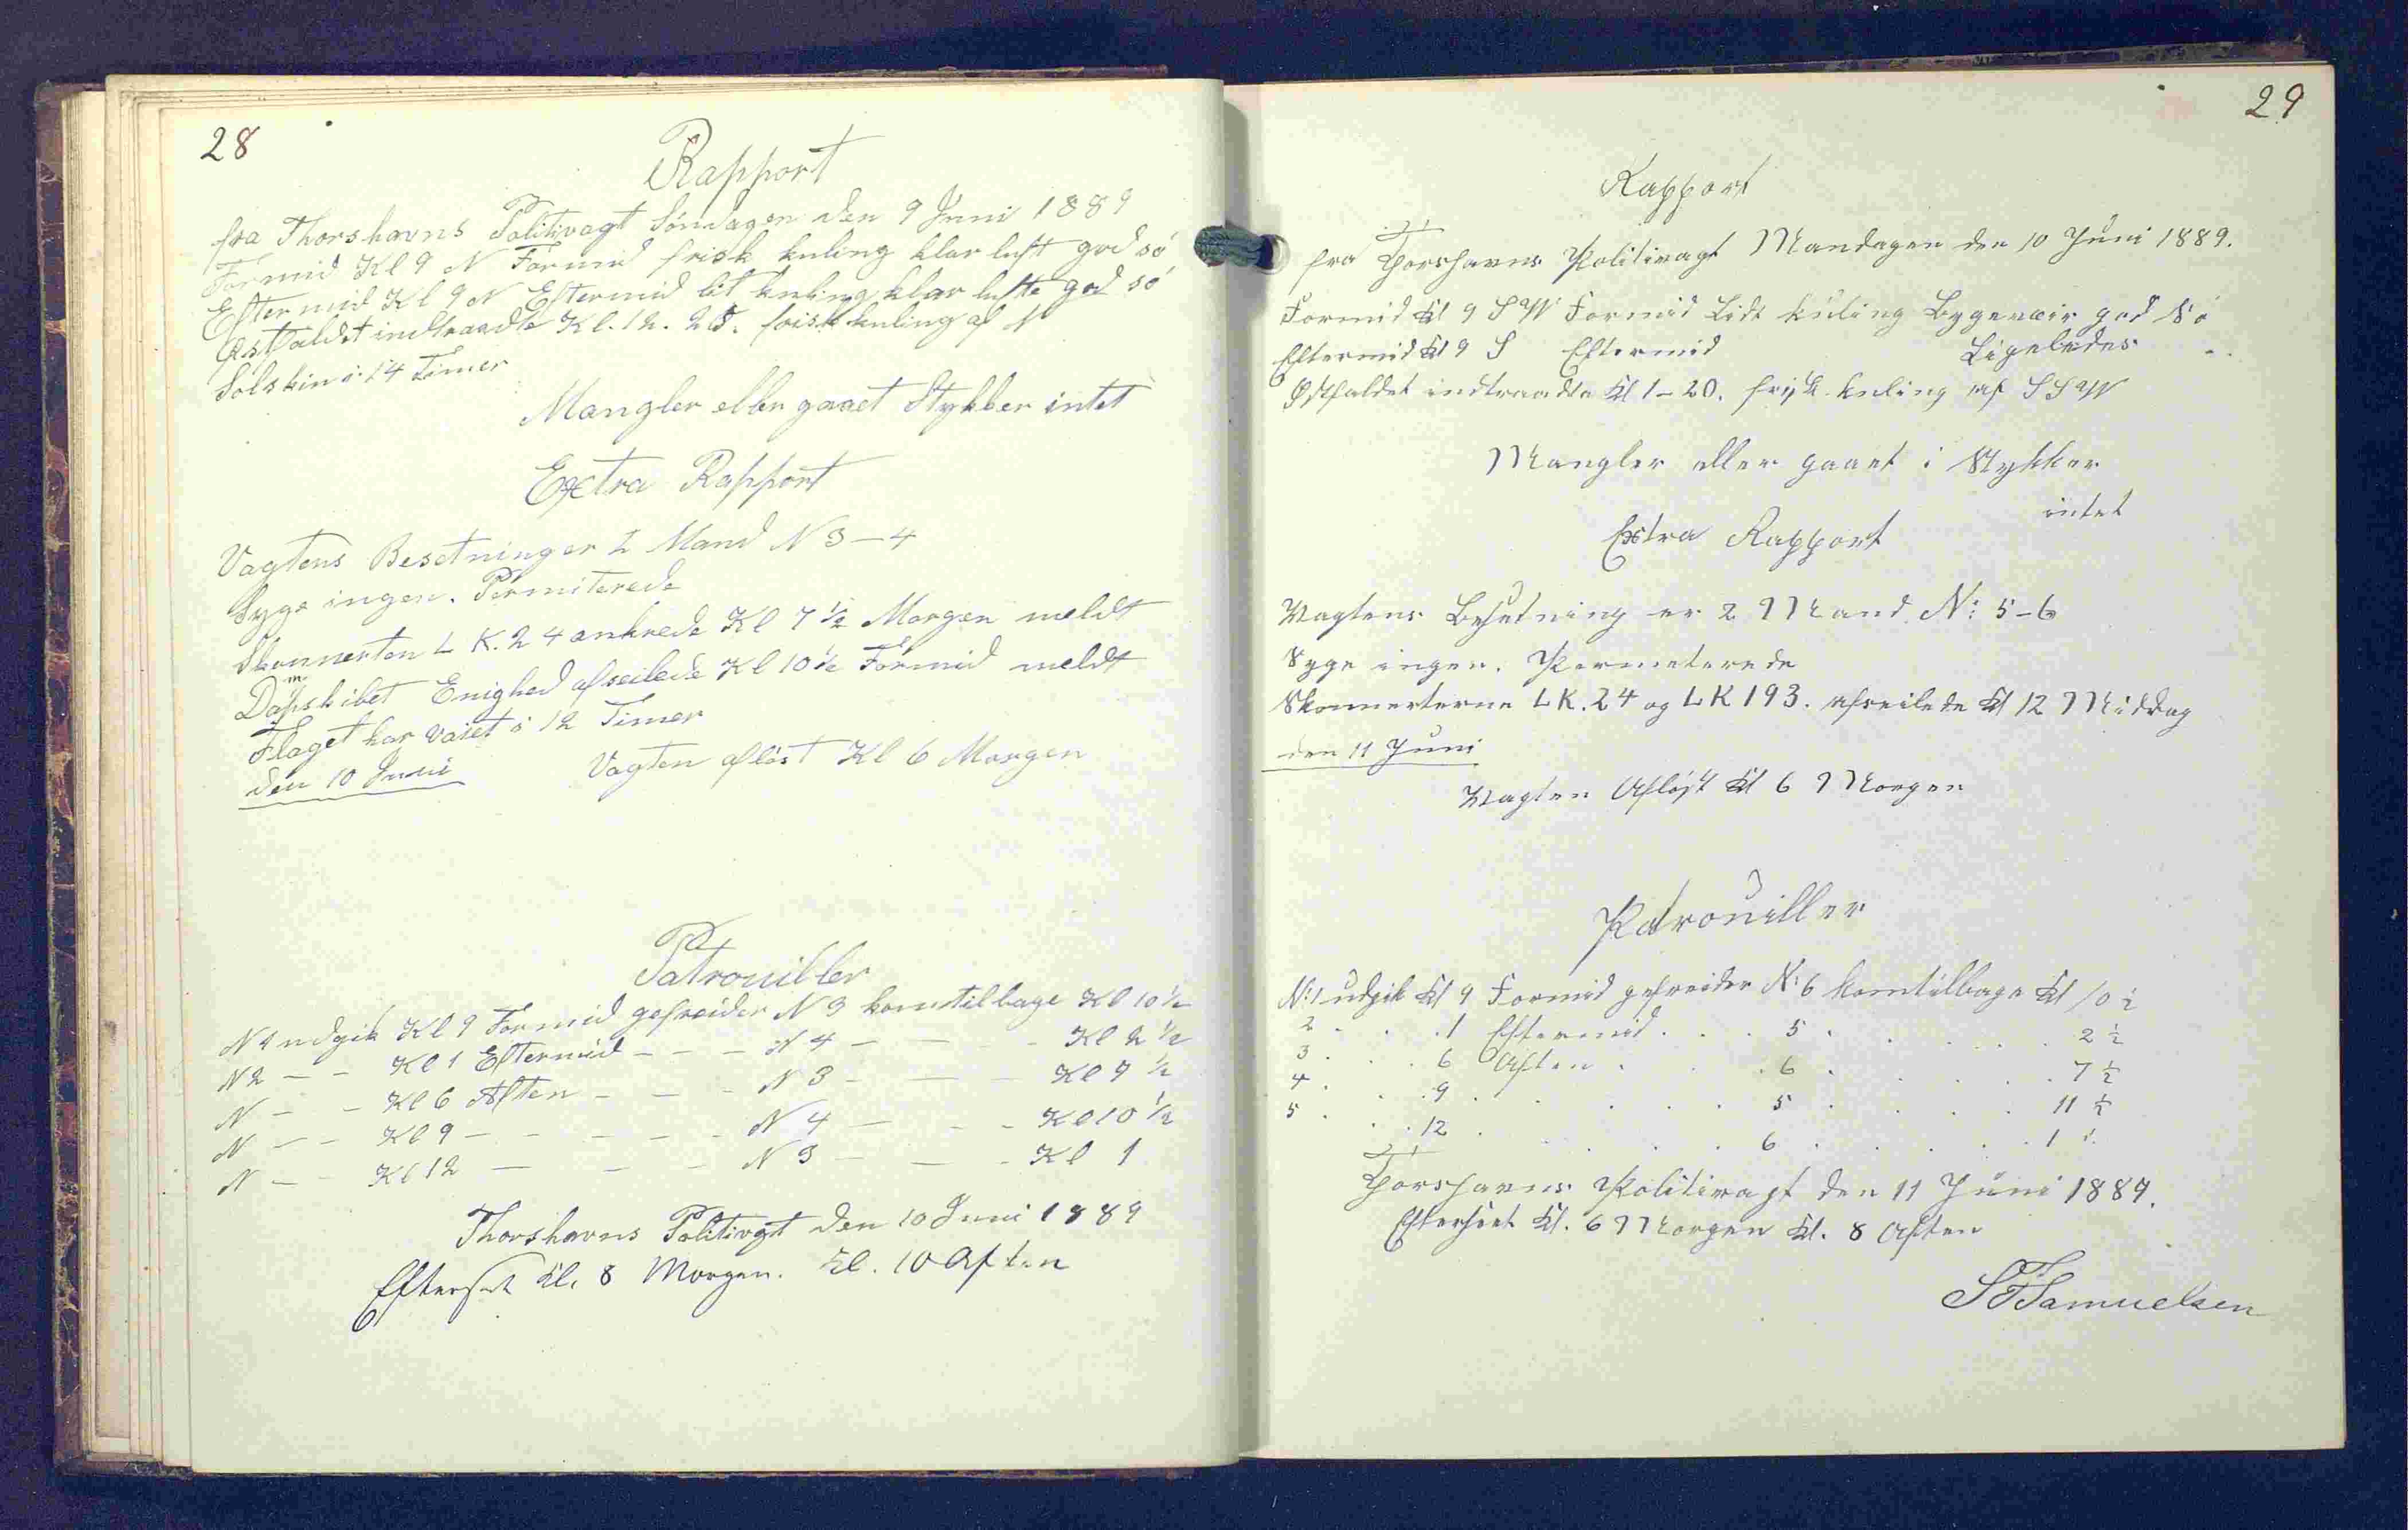 28
Rapport
fra Thorshavns Politivagt Søndagen den 9 Juni 1889
Formid Kl 9 N Formid frisk kuling klar luft god sö
Eftermid Kl 9 N Eftermid lit kuling klar lufte god só
Østfaldet indtraadte Kl. 12. 25. frisk kuling af N
Solskin i 14 Timer
Mangler eller gaaet Stykker intet
Extra Rapport
Vagtens Besetning er 2 Mand N 3-4
Syge ingen. Permiterede
Skonnerten LK. 24 ankrede Kl 7 1/2 Morgen meldt
Dampskibet Enighed afseilede Kl 10 1/2 Formid meldt
Flaget har vaiet i 12 Timer
den 10 Juni Vagten aflöst Kl 6 Morgen
Patrouiller
N 1 udgik Kl 9 Formid gefreider N 3 kom tilbage Kl 10 1/2
N 2 - - Kl 1 Eftermid - - - N 4 - - - Kl 2 1/2
N - - Kl 6 Aften - - - N 3 - - - Kl 7 1/2
N - - Kl 9 - - - - - N 4 - - - Kl 10 1/2
N - - Kl 12 - - - N 3 - - - Kl 1
Thorshavns Politivgt den 10 Juni 1889
Efterset Kl. 8 Morgen. Kl. 10 Aften
29
Rapport
fra Thorshavns Politivagt Mandagen den 10 Juni 1889.
Formid Kl 9 SW Formid Lidt kuling Bygeveir god Sö
Eftermid Kl 9 S Eftermid Ligeledes
Østfaldet indtraadte Kl 1-20. frisk kuling af SSW
Mangler eller gaaet i Stykker
intet
Extra Rapport
Vagtens Besetning er 2 Mand. N: 5-6
Syge ingen. Permeterede
Skonnerterne LK. 24 og LK 193. afseilede Kl 12 Middag
den 11 Juni
Vagten Aflöst Kl 6 Morgen
Patrouiller
N: 1 udgik Kl 9 Formid gefreider N: 6 kom tilbage Kl 10 1/2
2 . . . 1 Eftermid . . . 5 . . . . 2 1/2
3 . . . 6 Aften . . . 6 . . . . 7 1/2
4 . . . 9 . . . . 5 . . . . 11 1/2
5 . . . 12 . . . . 6 . . . . 1
Thorshavns Politivagt den 11 Juni 1889.
Efterseet Kl. 6 Morgen Kl. 8 Aften
Samuelsen